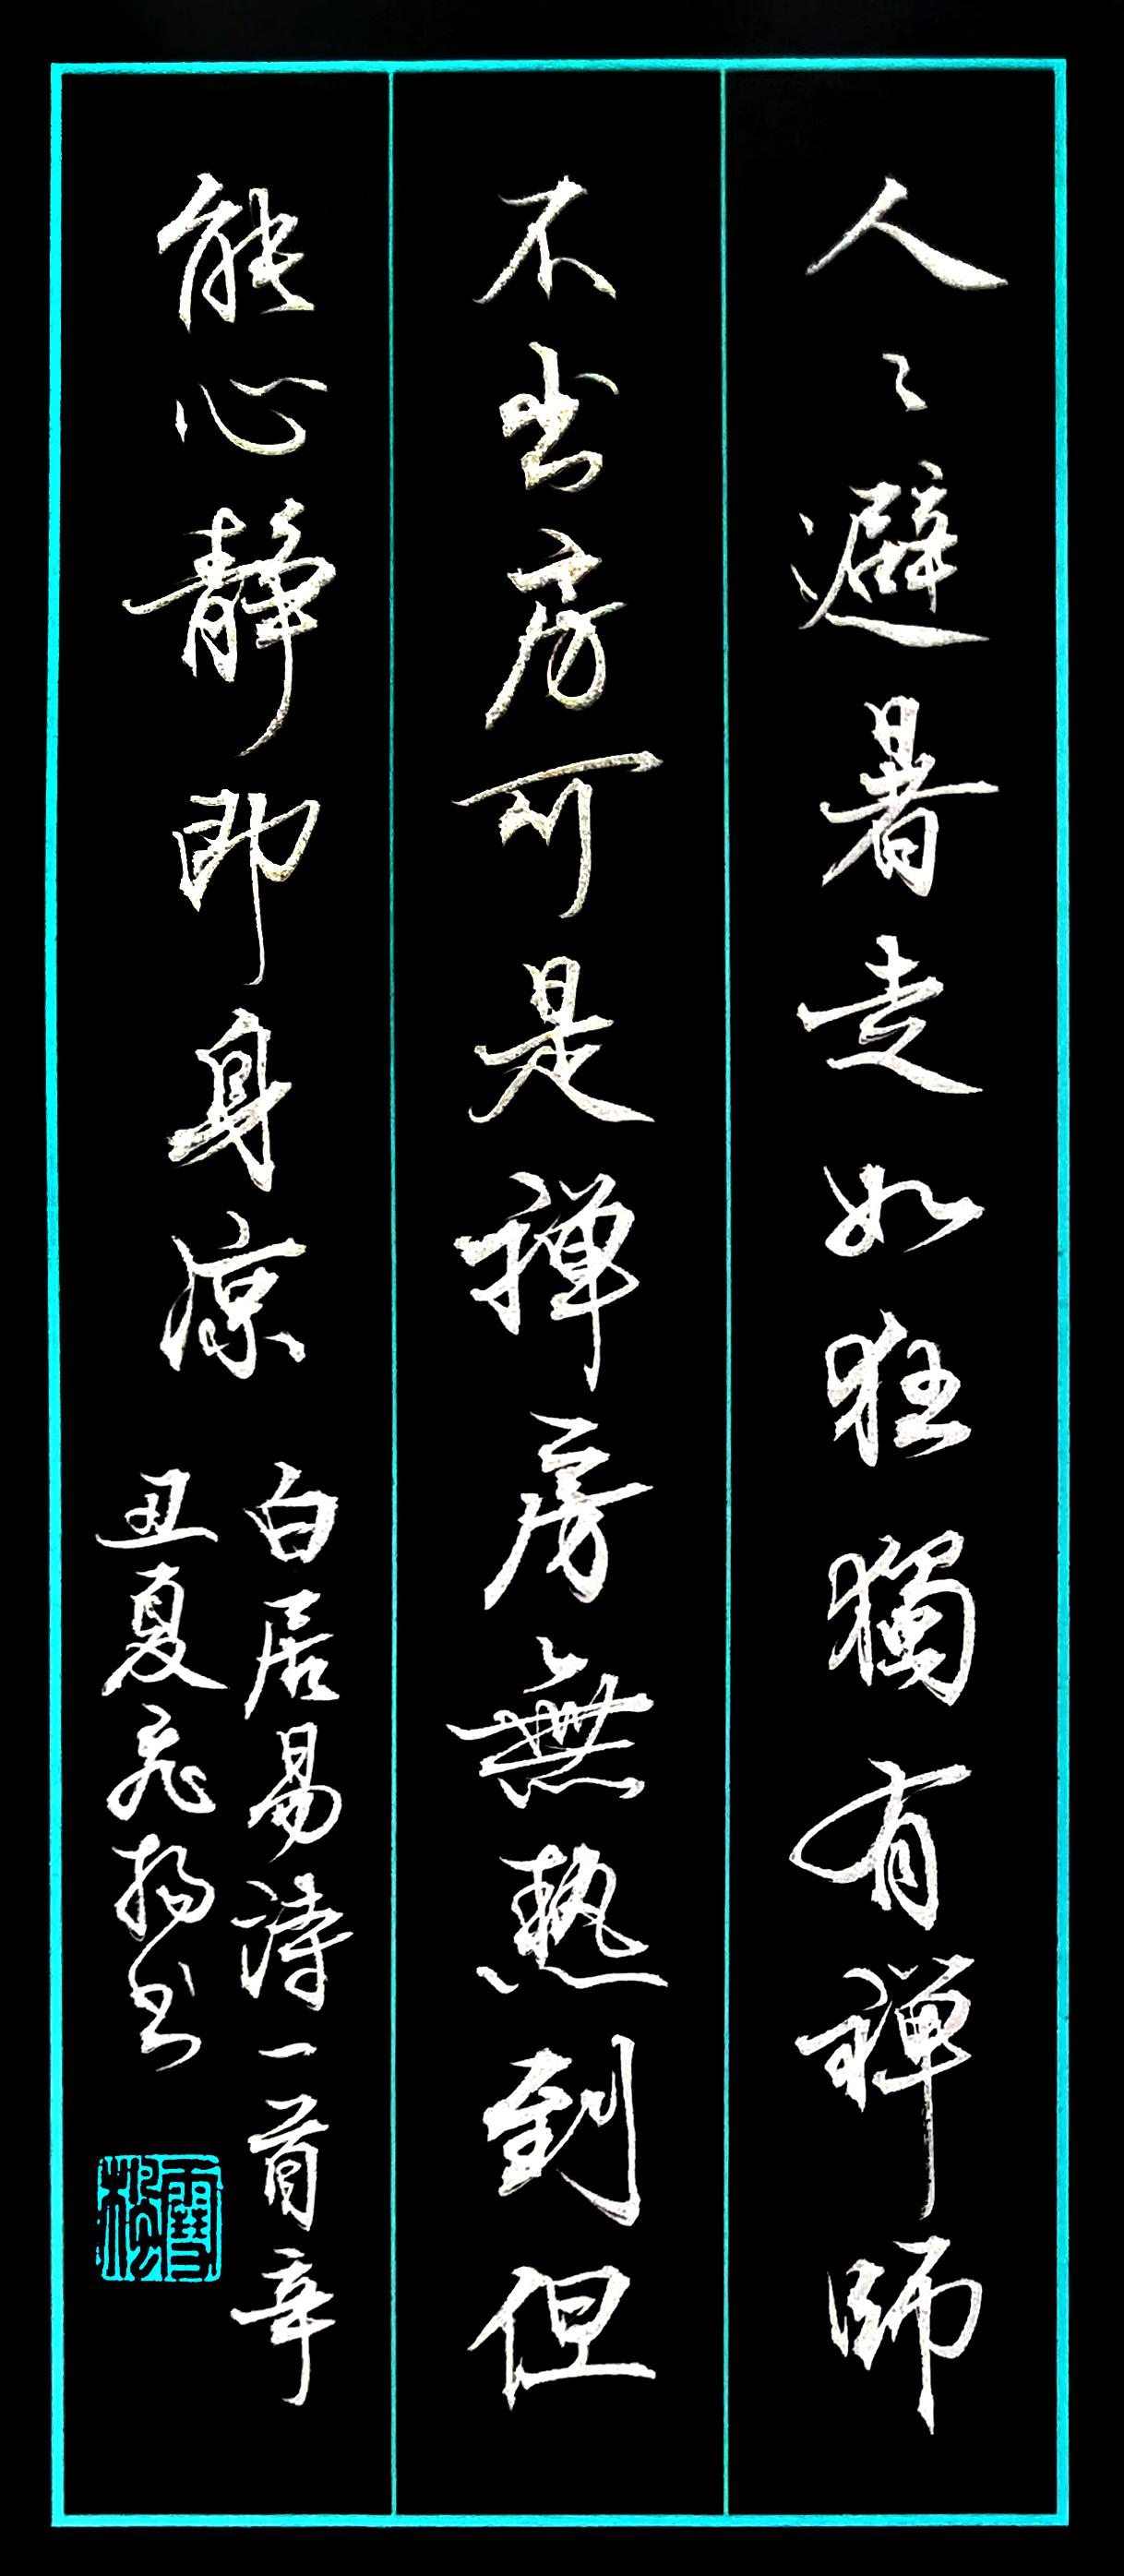 人々避暑走如狂獨有禪師
不出房可是禪房無熱到但
能心靜即身凉
白居易詩一首辛
丑夏飛揚书
雪松